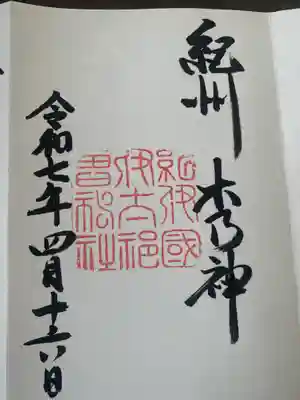 紀州 木乃神
紀伊國
伊太祁
曽神社
令和七年四月十六日